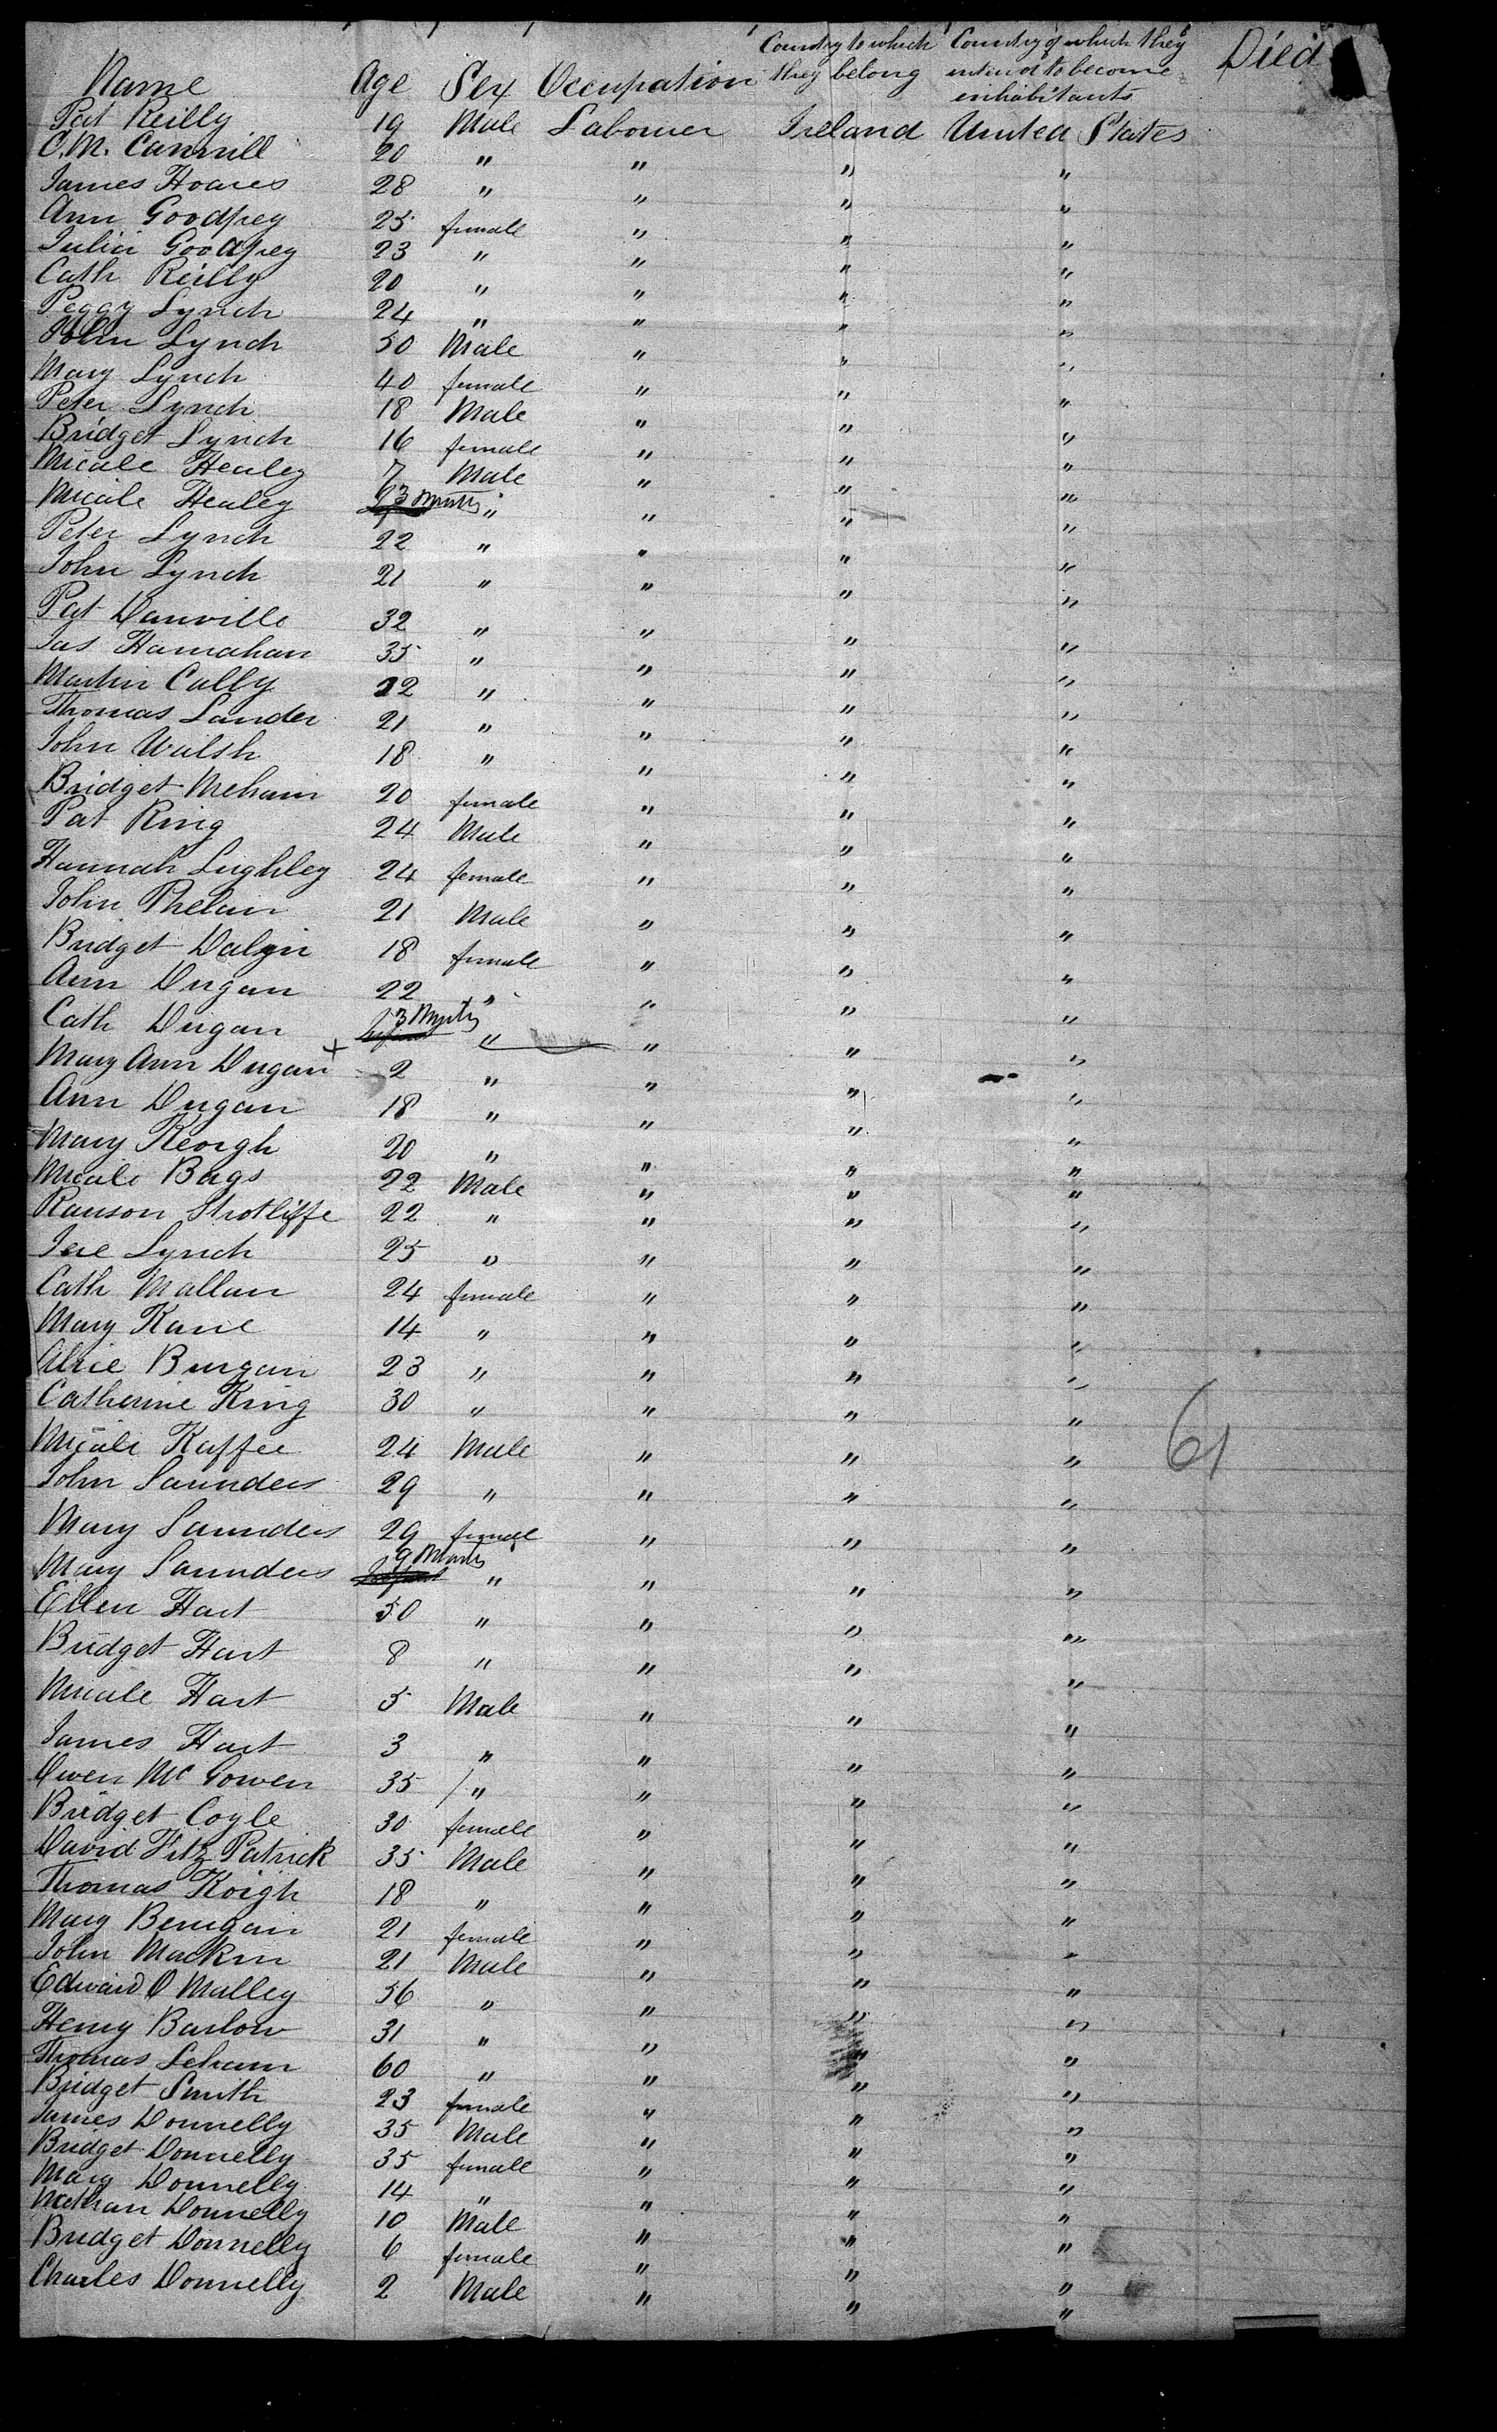 Name Age Sex Occupation Country to which they belong Country of which they intend to become inhabitants Died
Pat Reilly 19 Male Labourer Ireland United States
C. M. Cammill 20 " " " "
James Hoares 28 " " " "
Ann Goodfrey 25 female " " "
Julia Goodfrey 23 " " " "
Cath Reilly 20 " " " "
Peggy Lynch 24 " " " "
John Lynch 50 Male " " "
Mary Lynch 40 female " " "
Peter Lynch 18 Male " " "
Bridget Lynch 16 female " " "
Micale Healey 7 Male " " "
Micale Healey 3 Months " " " "
Peter Lynch 22 " " " "
John Lynch 21 " " " "
Pat Danville 32 " " " "
Jas Hamahan 35 " " " "
Martin Cally 22 " " " "
Thomas Lander 21 " " " "
John Walsh 18 " " " "
Bridget Mehain 20 female " " "
Pat King 24 Male " " "
Hannah Lughley 24 female " " "
John Phelan 21 Male " " "
Bridget Dalyn 18 female " " "
Ann Dugan 22 " " " "
Cath Dugan 3 Mnths " " " "
Mary Ann Dugan + 2 " " " "
Ann Dugan 18 " " " "
Mary Keorgh 20 " " " "
Micale Bags 22 Male " " "
Ranson Strotliffe 22 " " " "
Jere Lynch 25 " " " "
Cath Mallan 24 female " " "
Mary Kane 14 " " " "
Alice Burgan 23 " " " "
Catherine King 30 " " " "
Micale Kaffee 24 Male " " " 61
John Saunders 29 " " " "
Mary Saunders 29 female " " "
Mary Saunders 9 Months " " " "
Ellen Hart 50 " " " "
Bridget Hart 8 " " " "
Micale Hart 5 Male " " "
James Hart 3 " " " "
Owen Mc Gowen 35 " " " "
Bridget Coyle 30 female " " "
David Fitz Patrick 35 Male " " "
Thomas Koigh 18 " " " "
Mary Benigan 21 female " " "
John Mackin 21 Male " " "
Edward O Malley 56 " " " "
Henry Barlow 31 " " " "
Thomas Leham 60 " " " "
Bridget Smith 23 female " " "
James Donnelly 35 Male " " "
Bridget Donnelly 35 female " " "
Mary Donnelly 14 " " " "
Nathan Donnelly 10 Male " " "
Bridget Donnelly 6 female " " "
Charles Donnelly 2 Male " " "